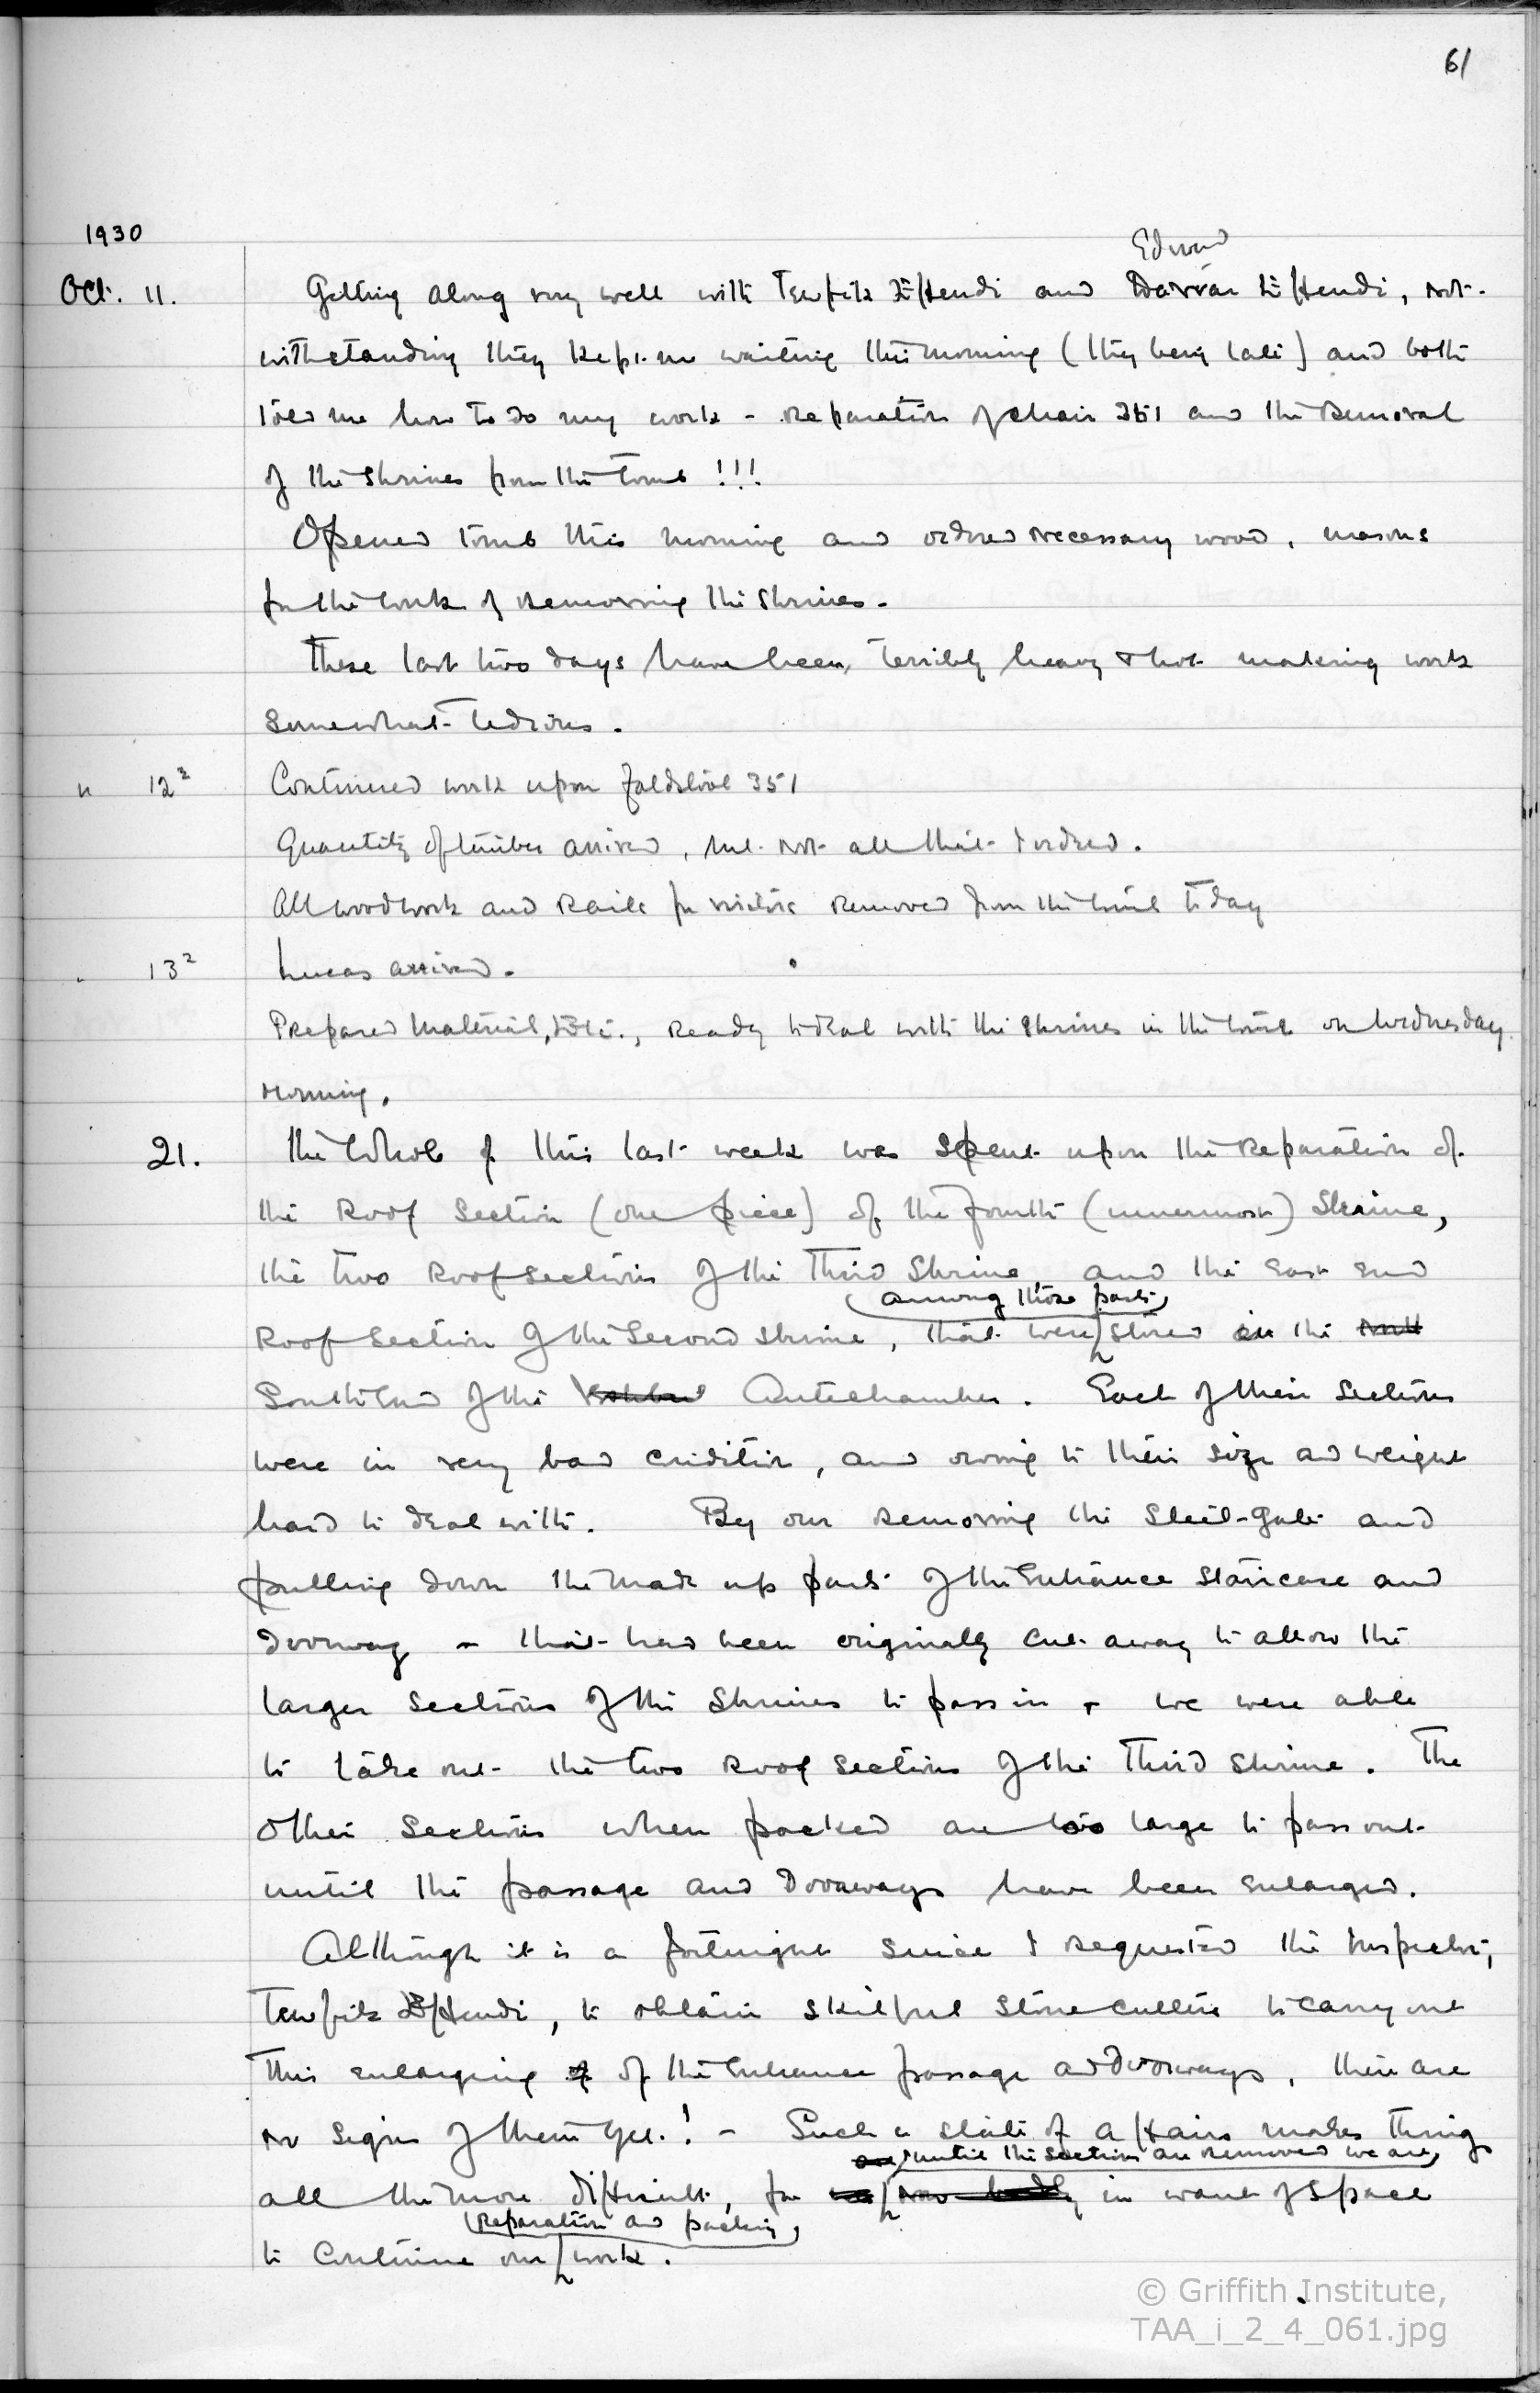 61
1930
Edwar
Oct. 11. Getting along very well with Tewfik Effendi and Effendi, not-
withstanding they kept me waiting this morning (they being late) and both
told me how to do my work - reparation of chair 351 and the removal
of the shrines from the tomb !!!
Opened tomb this morning and ordered necessary wood, masons
for the work of removing the shrines.
These last two days have been terribly heavy & hot making work
somewhat tedious.
" 12 Continued work upon faldstool 351
Quantity of timber arrived, but not all that I ordered.
All woodwork and rails for visitors removed from the tomb today
" 13 Lucas arrived.
Prepared material, etc., ready to deal with the shrines in the tomb on Wednesday
morning.
21. The whole of this last week was spent upon the reparation of
the Roof Section (one piece) of the fourth (innermost) Shrine,
the two Roof sections of the Third Shrine, and the East End
(among those parts)
Roof section of the Second shrine, that were stored in the
South End of the Antechamber. Each of these sections
were in very bad condition, and owing to their size and weight
hard to deal with. By our removing the steel-gate and
pulling down the made up parts of the Entrance staircase and
doorway - that had been originally cut away to allow the
larger sections of the Shrines to pass in - we were able
to take out the two Roof sections of the Third Shrine. The
other sections when packed are too large to pass out
until the passage and Doorways have been enlarged.
Although it is a fortnight since I requested the Inspector,
Tewfik Effendi, to obtain skilful stone cutters to carry out
this enlarging of the Entrance passage and doorways, there are
no signs of them yet! - Such a state of affairs makes things
until the sections are removed we are
all the more difficult, for in want of space
(reparation and packing)
to continue our work.
© Griffith Institute,
TAA_i_2_4_061.jpg